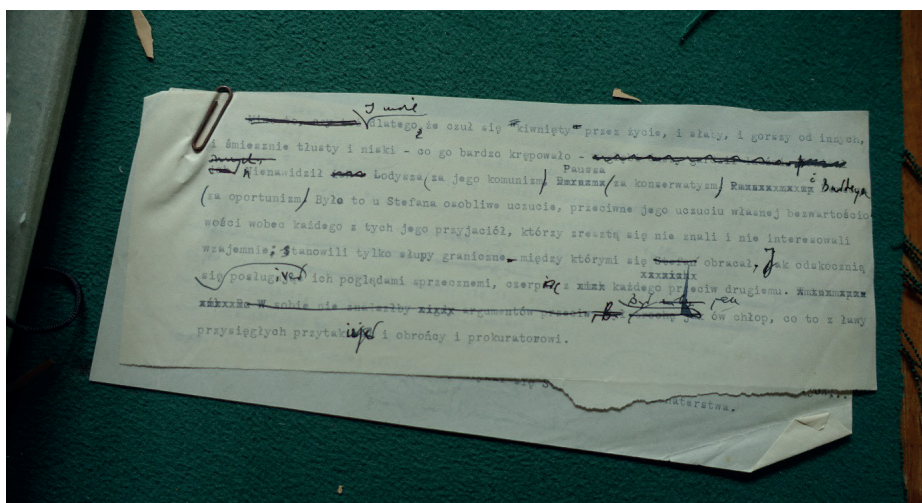 I może
dlatego, że czuł się "kiwnięty" przez życie, i słaby, i gorszy od innych,
i śmiesznie tłusty i niski - co go bardzo krępowało -
Pausza
nienawidził Łodysza (za jego komunizm) (za konserwatyzm) i
(za oportunizm) Było to u Stefana osobliwe uczucie, przeciwne jego uczuciu własnej bezwartościo
wości wobec każdego z tych jego przyjaciół, którzy zresztą się nie znali i nie interesowali
wzajemnie; stanowili tylko słupy graniczne - między którymi się obracał, jak odskocznią
się posługując ich poglądami sprzecznemi, czerpiąc z każdego przeciw drugiemu.
W sobie nie znalazłby argumentów ów chłop, co to z ławy
przysięgłych przytakuje i obrońcy i prokuratorowi.
naterstwa.